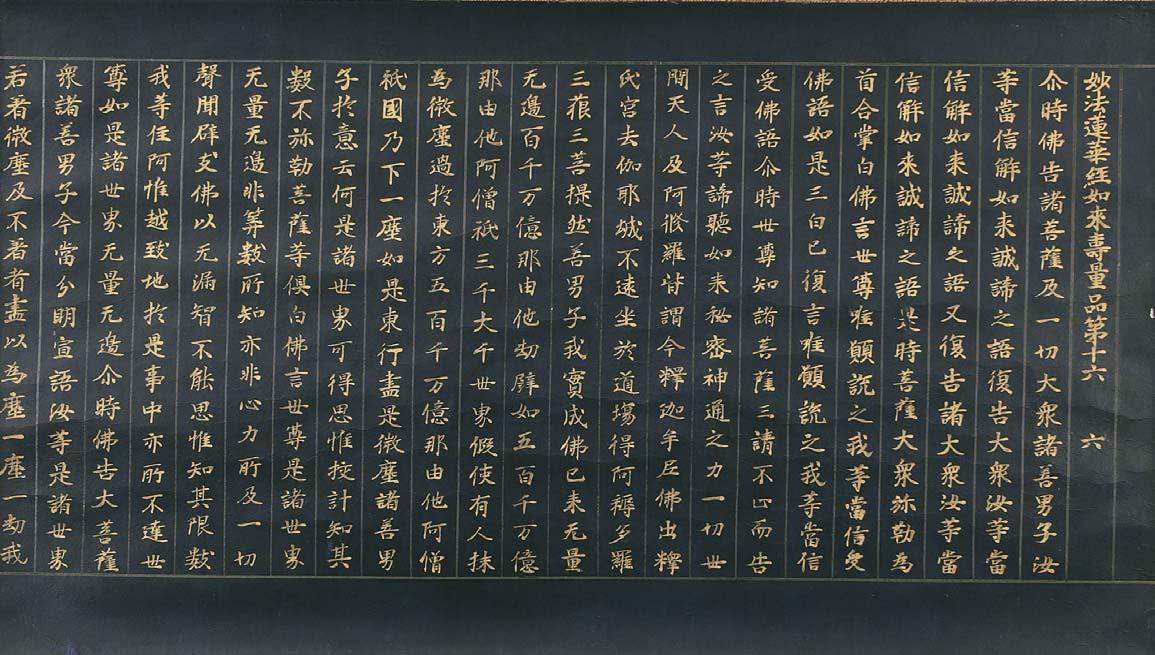 妙法蓮華經如來壽量品第十六 六
尒時佛告諸菩薩及一切大衆諸善男子汝
等當信解如来誠諦之語復告大衆汝等當
信解如来誠諦之語又復告諸大衆汝等當
信解如来誠諦之語是時菩薩大衆弥勒為
首合掌白佛言世尊唯願說之我等當信受
佛語如是三白已復言唯願說之我等當信
受佛語尒時世尊知諸菩薩三請不止而告
之言汝等諦聽如来秘密神通之力一切世
間天人及阿脩羅皆謂今釋迦牟尼佛出釋
氏宮去伽耶城不遠坐於道場得阿耨多羅
三藐三菩提然善男子我實成佛已来无量
无邊百千万億那由他劫譬如五百千万億
那由他阿僧祇三千大千世界假使有人抹
為微塵過於東方五百千万億那由他阿僧
祇國乃下一塵如是東行盡是微塵諸善男
子於意云何是諸世界可得思惟挍計知其
數不弥勒菩薩等俱白佛言世尊是諸世界
无量无邊非筭數所知亦非心力所及一切
聲聞辟支佛以无漏智不能思惟知其限數
我等住阿惟越致地於是事中亦所不達世
尊如是諸世界无量无邊尒時佛告大菩薩
衆諸善男子今當分明宣語汝等是諸世界
若著微塵及不著者盡以為塵一塵一劫我